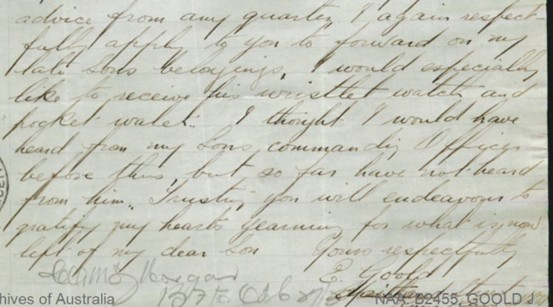 advice from any quarter I again respect-
fully apply to you to forward on my
late sons belongings, I would especially
like to receive his wristlet watch and
pocket watch. I thought I would have
heard from my sons commanding Officer
before this, but so far have not heard
from him. Trusting you will endeavour to
gratify my hearts yearning for what is now
left of my dear son Yours respectfully
E Goold
hives of Australia
NAA: B2455, GOOLD J